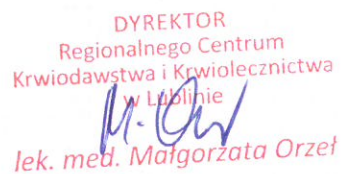 DYREKTOR
Regionalnego Centrum
Krwiodawstwa i Krwiolecznictwa
w Lublinie
lek. med. Małgorzata Orzeł